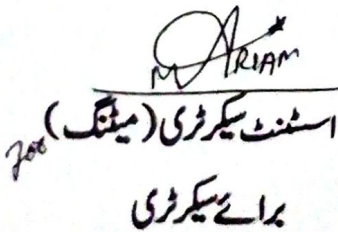 MARIAM
اسسٹنٹ سیکرٹری (میٹنگ)
برائے سیکرٹری